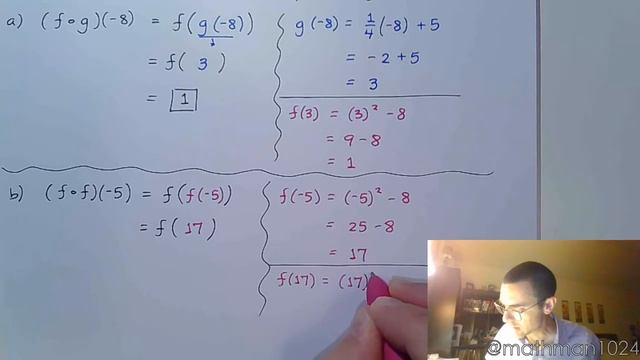 a) (f∘g)(-8) = f(g(-8))
= f( 3 )
= 1
g(-8) = 1/4 (-8) + 5
= -2 + 5
= 3
f(3) = (3)² - 8
= 9 - 8
= 1
b) (f∘f)(-5) = f(f(-5))
= f( 17 )
f(-5) = (-5)² - 8
= 25 - 8
= 17
f(17) = (17)
@mathman1024